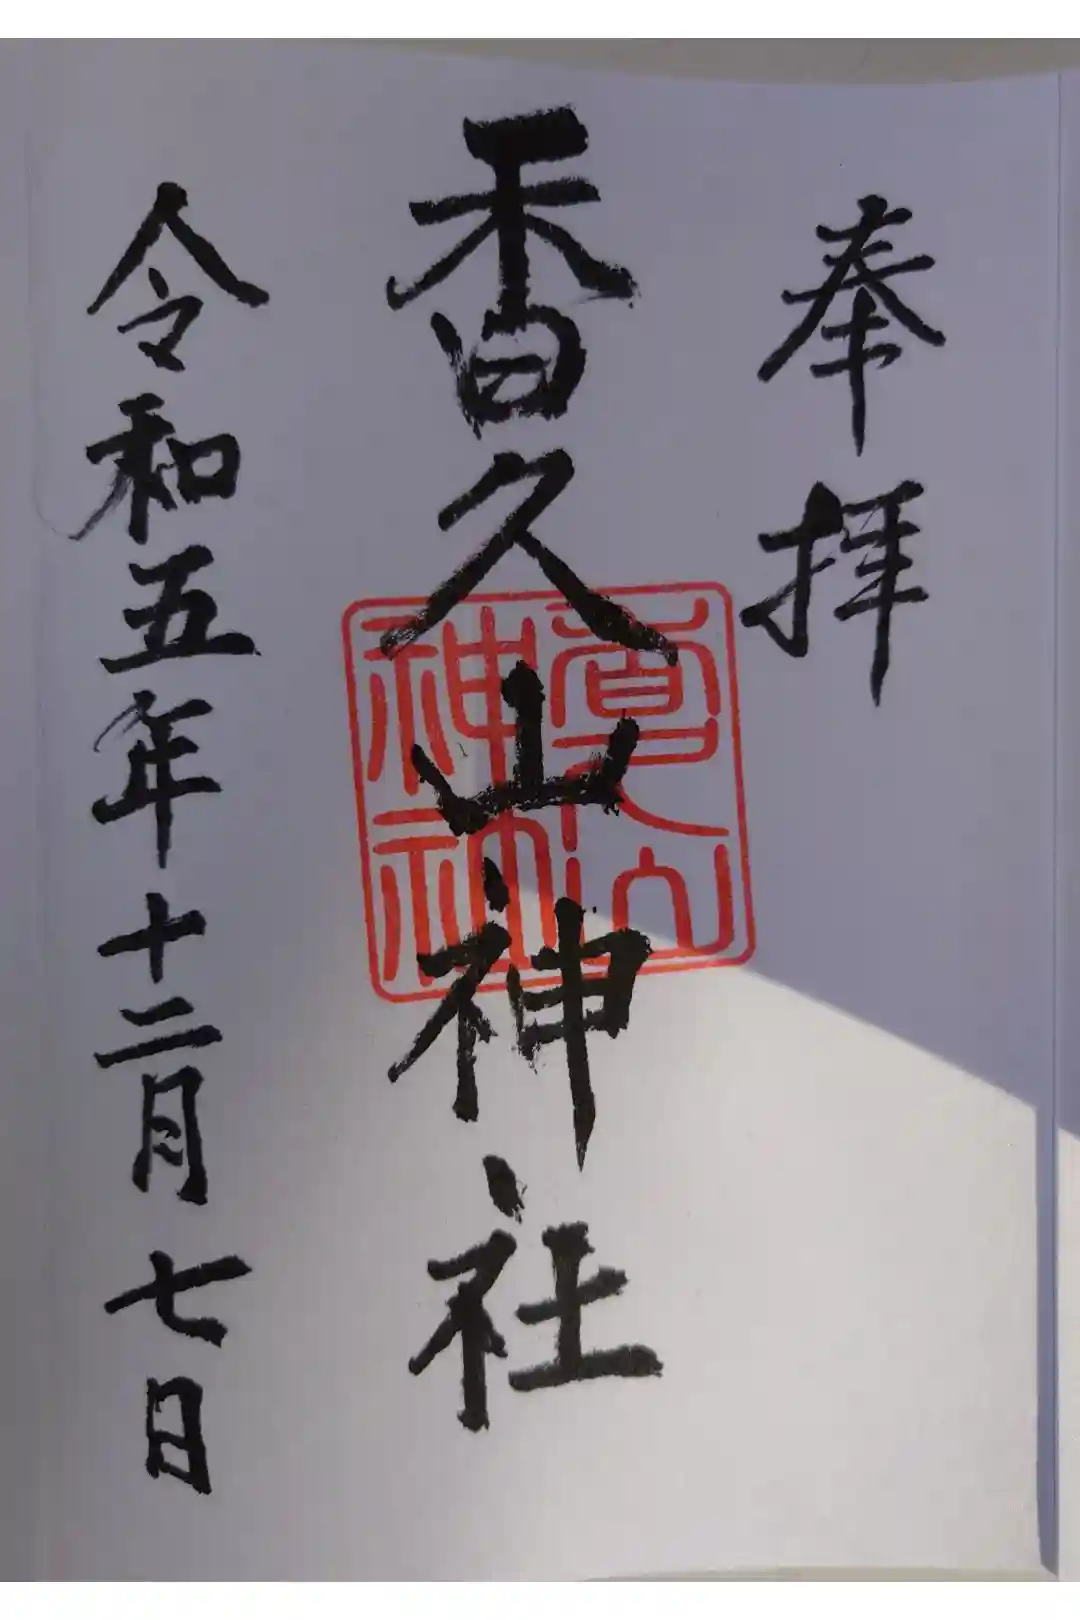 奉拝
香久山神社
香久山神社
令和五年十二月七日